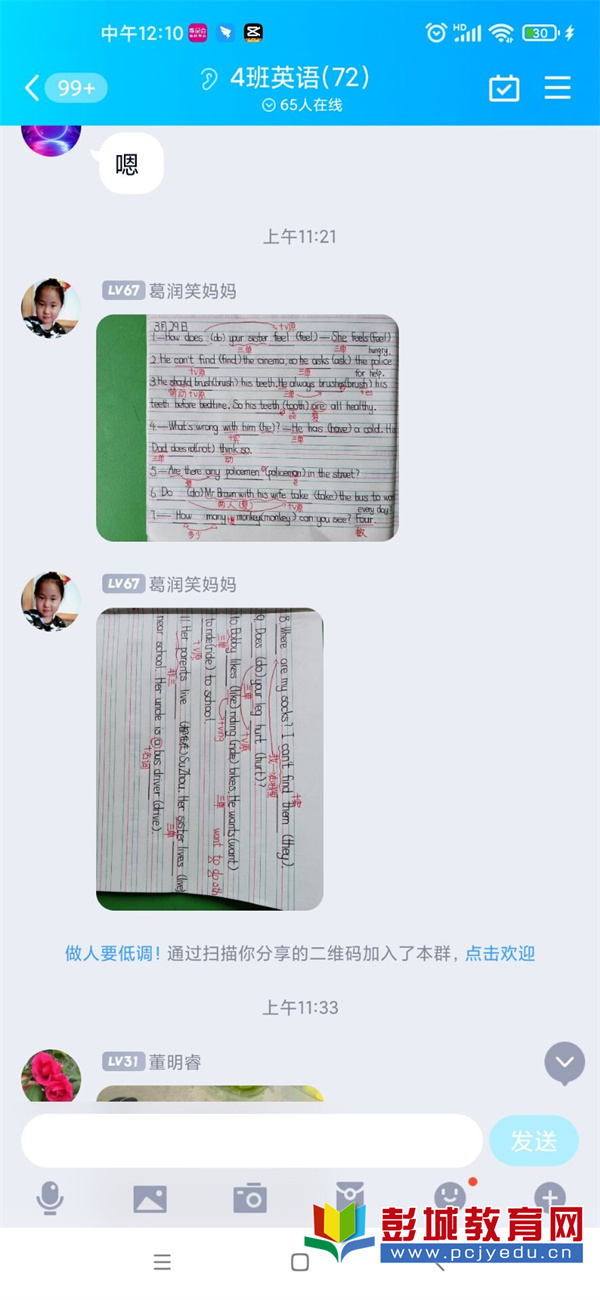 中午12:10
HD
30
99+
4班英语(72)
65人在线
嗯
上午11:21
LV67 葛润笑妈妈
3月29日
+v原
1.—How does (do) your sister feel (feel) — She feels(feel)
三单 三单 hungry.
2. He can't find (find) the cinema, so he asks (ask) the police
+v原 三单 for help.
3. He should brush(brush) his teeth. He always brushes(brush) his
情动+v原 三单
teeth before bedtime. So his teeth (tooth) are all healthy.
复
4.—What's wrong with him (he)? —He has (have) a cold. His
三单
Dad does not(not) think so.
三单 动
5.—Are there any policemen (policeman) in the street?
复
6. Do (do) Mr Brown with his wife take (take) the bus to wor
两人(复) +v原 every day?
7.— How many monkey(monkey) can you see? Four.
多少 数
LV67 葛润笑妈妈
8. Where are my socks? I can't find them (they).
9. Does (do) your leg hurt (hurt)?
三单 +v原
10. Bobby likes (like) riding (ride) bikes. He wants(want)
三单 +ving 三单
to ride(ride) to school. want to do sth
+v原
11. Her parents live SuZhou. Her sister lives (live)
三单
near school. Her uncle is a bus driver (drive).
+名词
做人要低调! 通过扫描你分享的二维码加入了本群,点击欢迎
上午11:33
LV31 董明睿
发送
彭城教育网
www.pcjyedu.cn